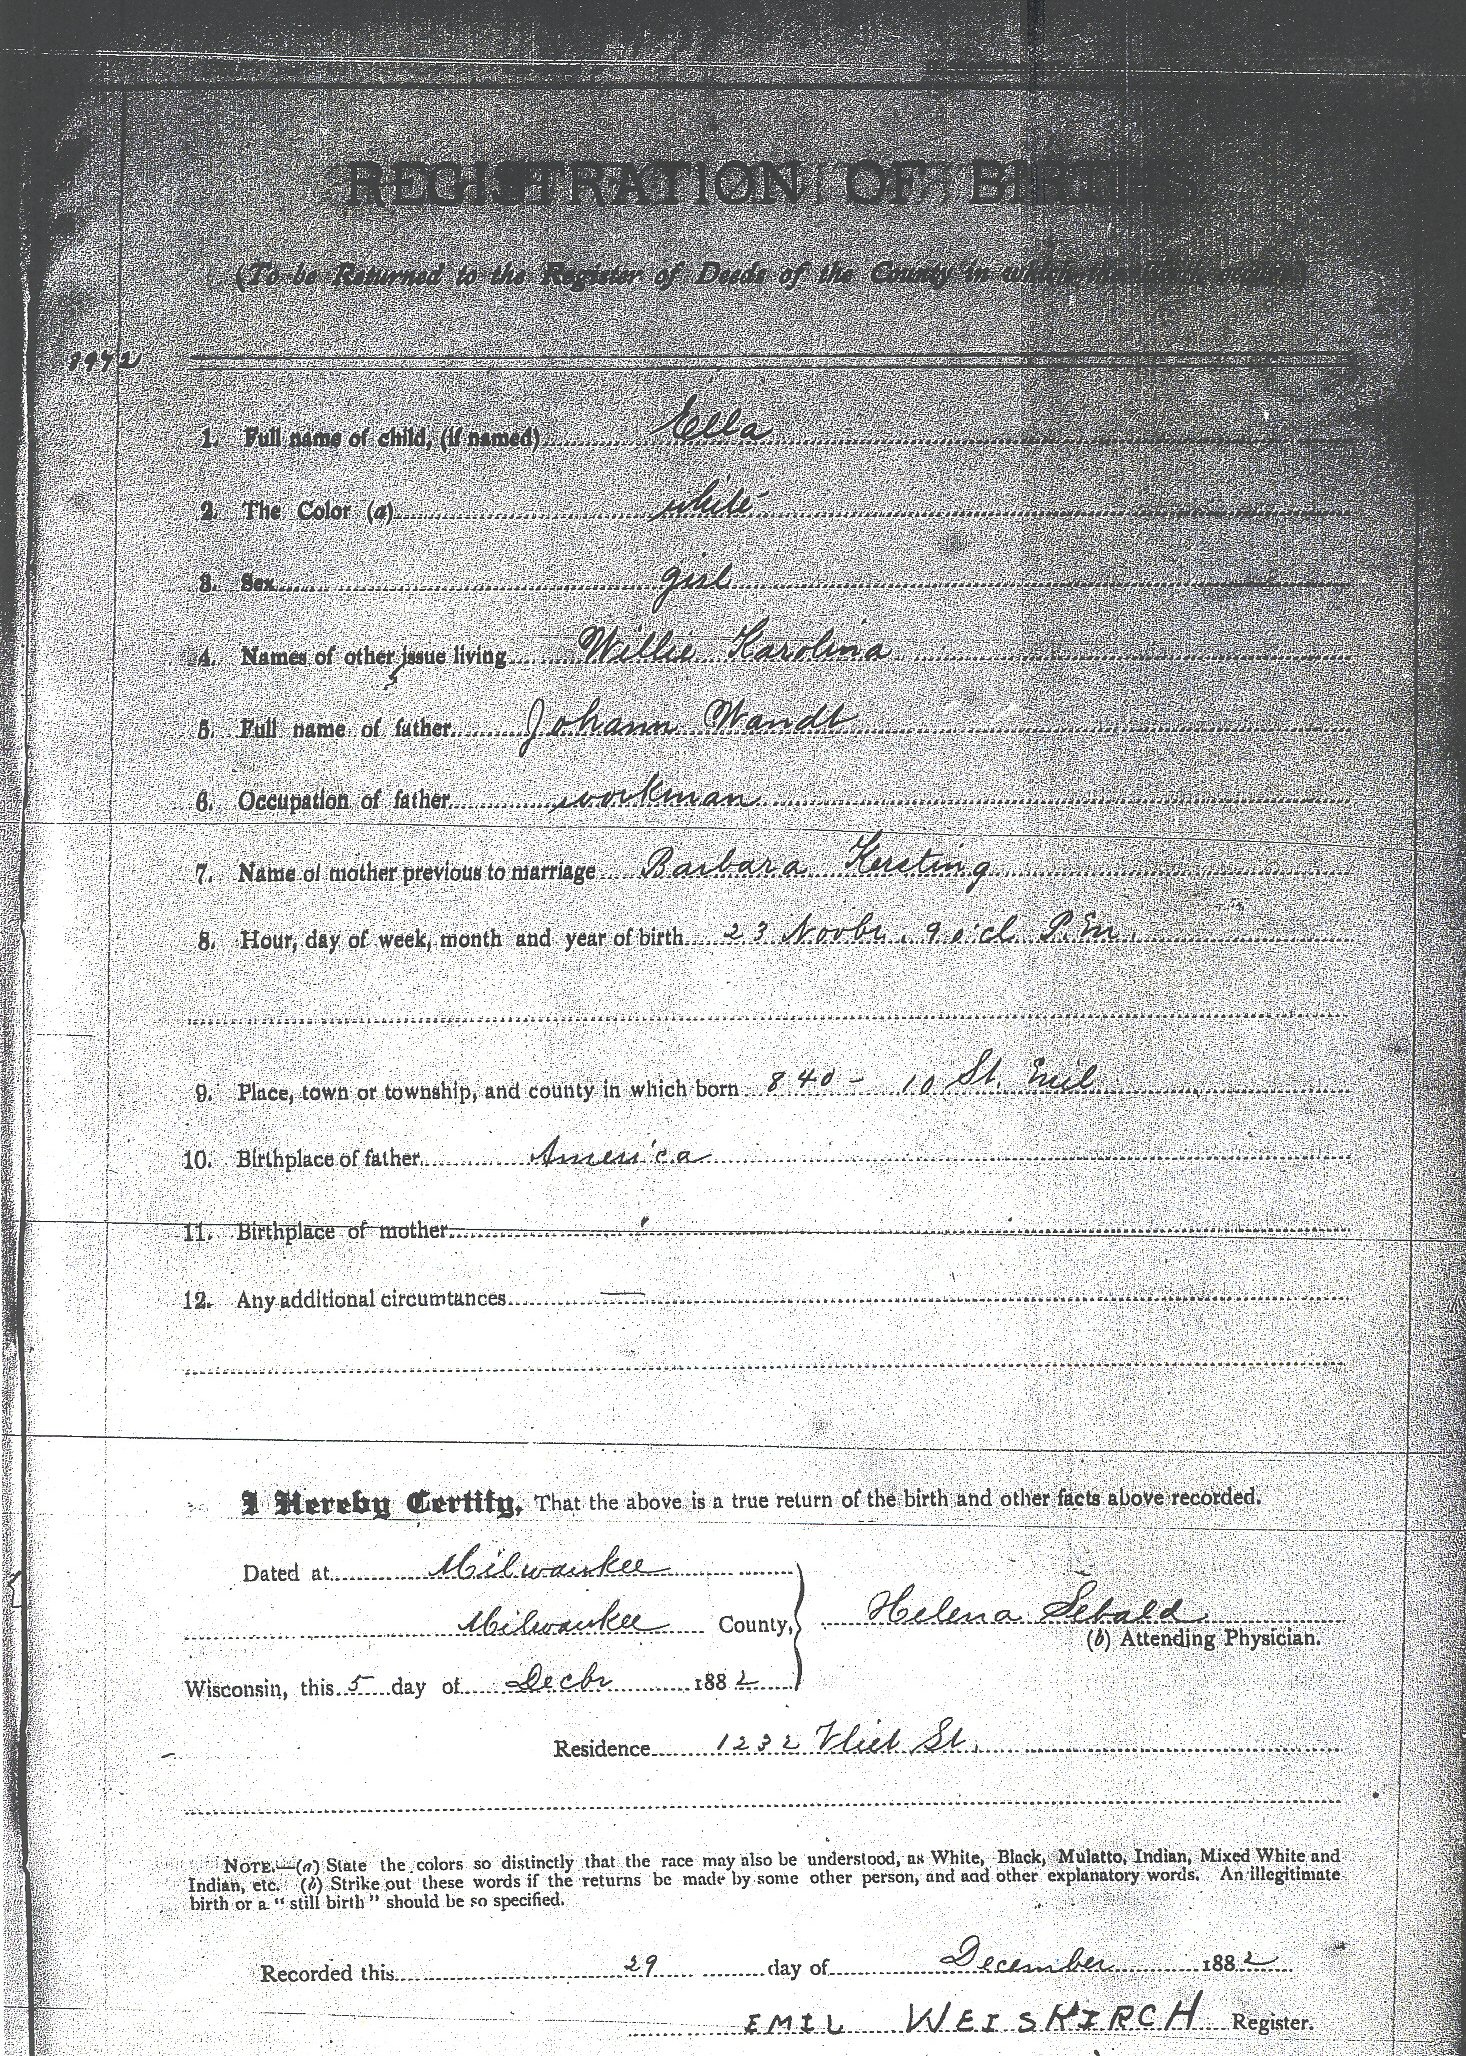 REGISTRATION OF BIRTH
(To be Returned to the Register of Deeds of the County in which
1. Full name of child, (if named) Ella
2. The Color (a) white
3. Sex girl
4. Names of other issue living Willie Karolina
5. Full name of father Johann Wandt
6. Occupation of father workman
7. Name of mother previous to marriage Barbara Kersting
8. Hour, day of week, month and year of birth 23 Novbr. 9 o'cl P.M.
9. Place, town or township, and county in which born 840 - 10 St. Mil
10. Birthplace of father America
11. Birthplace of mother "
12. Any additional circumtances —
I Hereby Certify, That the above is a true return of the birth and other facts above recorded.
Dated at Milwaukee
Milwaukee County, Helena Sebald
(b) Attending Physician.
Wisconsin, this 5 day of Decbr 1882
Residence 1232 Vliet St.
NOTE.—(a) State the colors so distinctly that the race may also be understood, as White, Black, Mulatto, Indian, Mixed White and
Indian, etc. (b) Strike out these words if the returns be made by some other person, and add other explanatory words. An illegitimate
birth or a "still birth" should be so specified.
Recorded this 29 day of December 1882
EMIL WEISKIRCH Register.